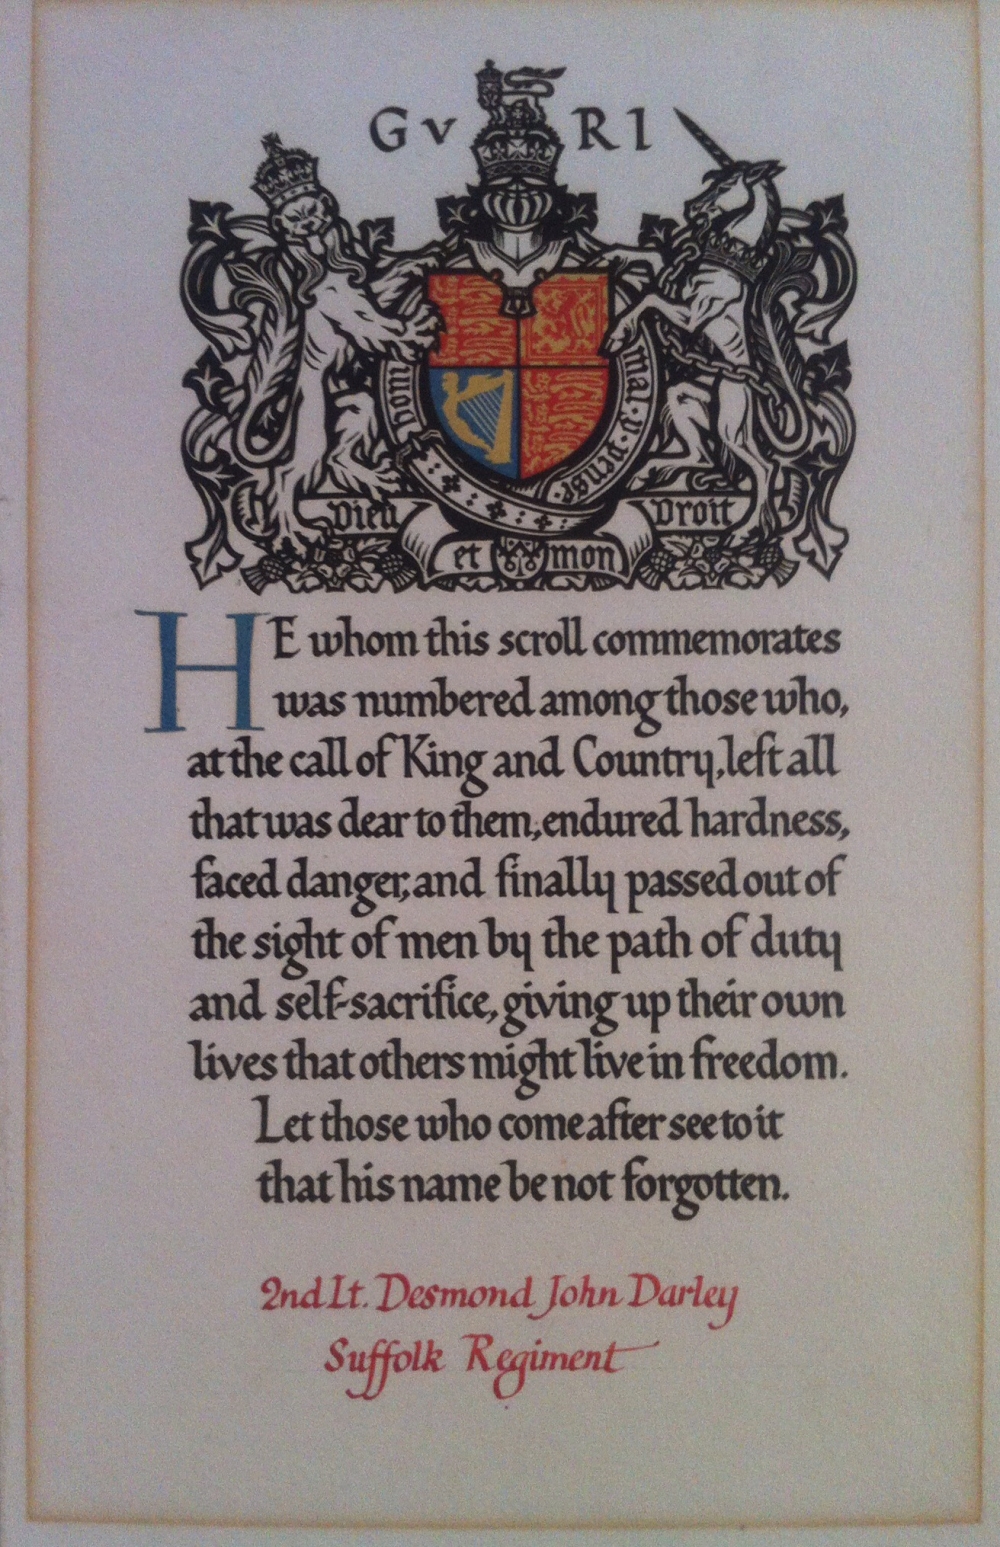 G v R I
Honi soit qui mal y pense
Dieu Droit
et mon
HE whom this scroll commemorates
was numbered among those who,
at the call of King and Country, left all
that was dear to them, endured hardness,
faced danger, and finally passed out of
the sight of men by the path of duty
and self-sacrifice, giving up their own
lives that others might live in freedom.
Let those who come after see to it
that his name be not forgotten.
2nd Lt. Desmond John Darley
Suffolk Regiment